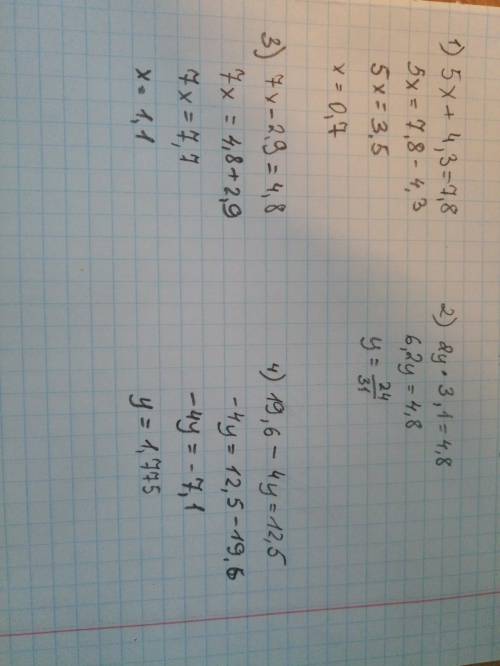 1) 5x + 4,3 = 7,8
5x = 7,8 - 4,3
5x = 3,5
x = 0,7
2) 2y · 3,1 = 4,8
6,2y = 4,8
y = 24/31
3) 7x - 2,9 = 4,8
7x = 4,8 + 2,9
7x = 7,7
x = 1,1
4) 19,6 - 4y = 12,5
-4y = 12,5 - 19,6
-4y = -7,1
y = 1,775